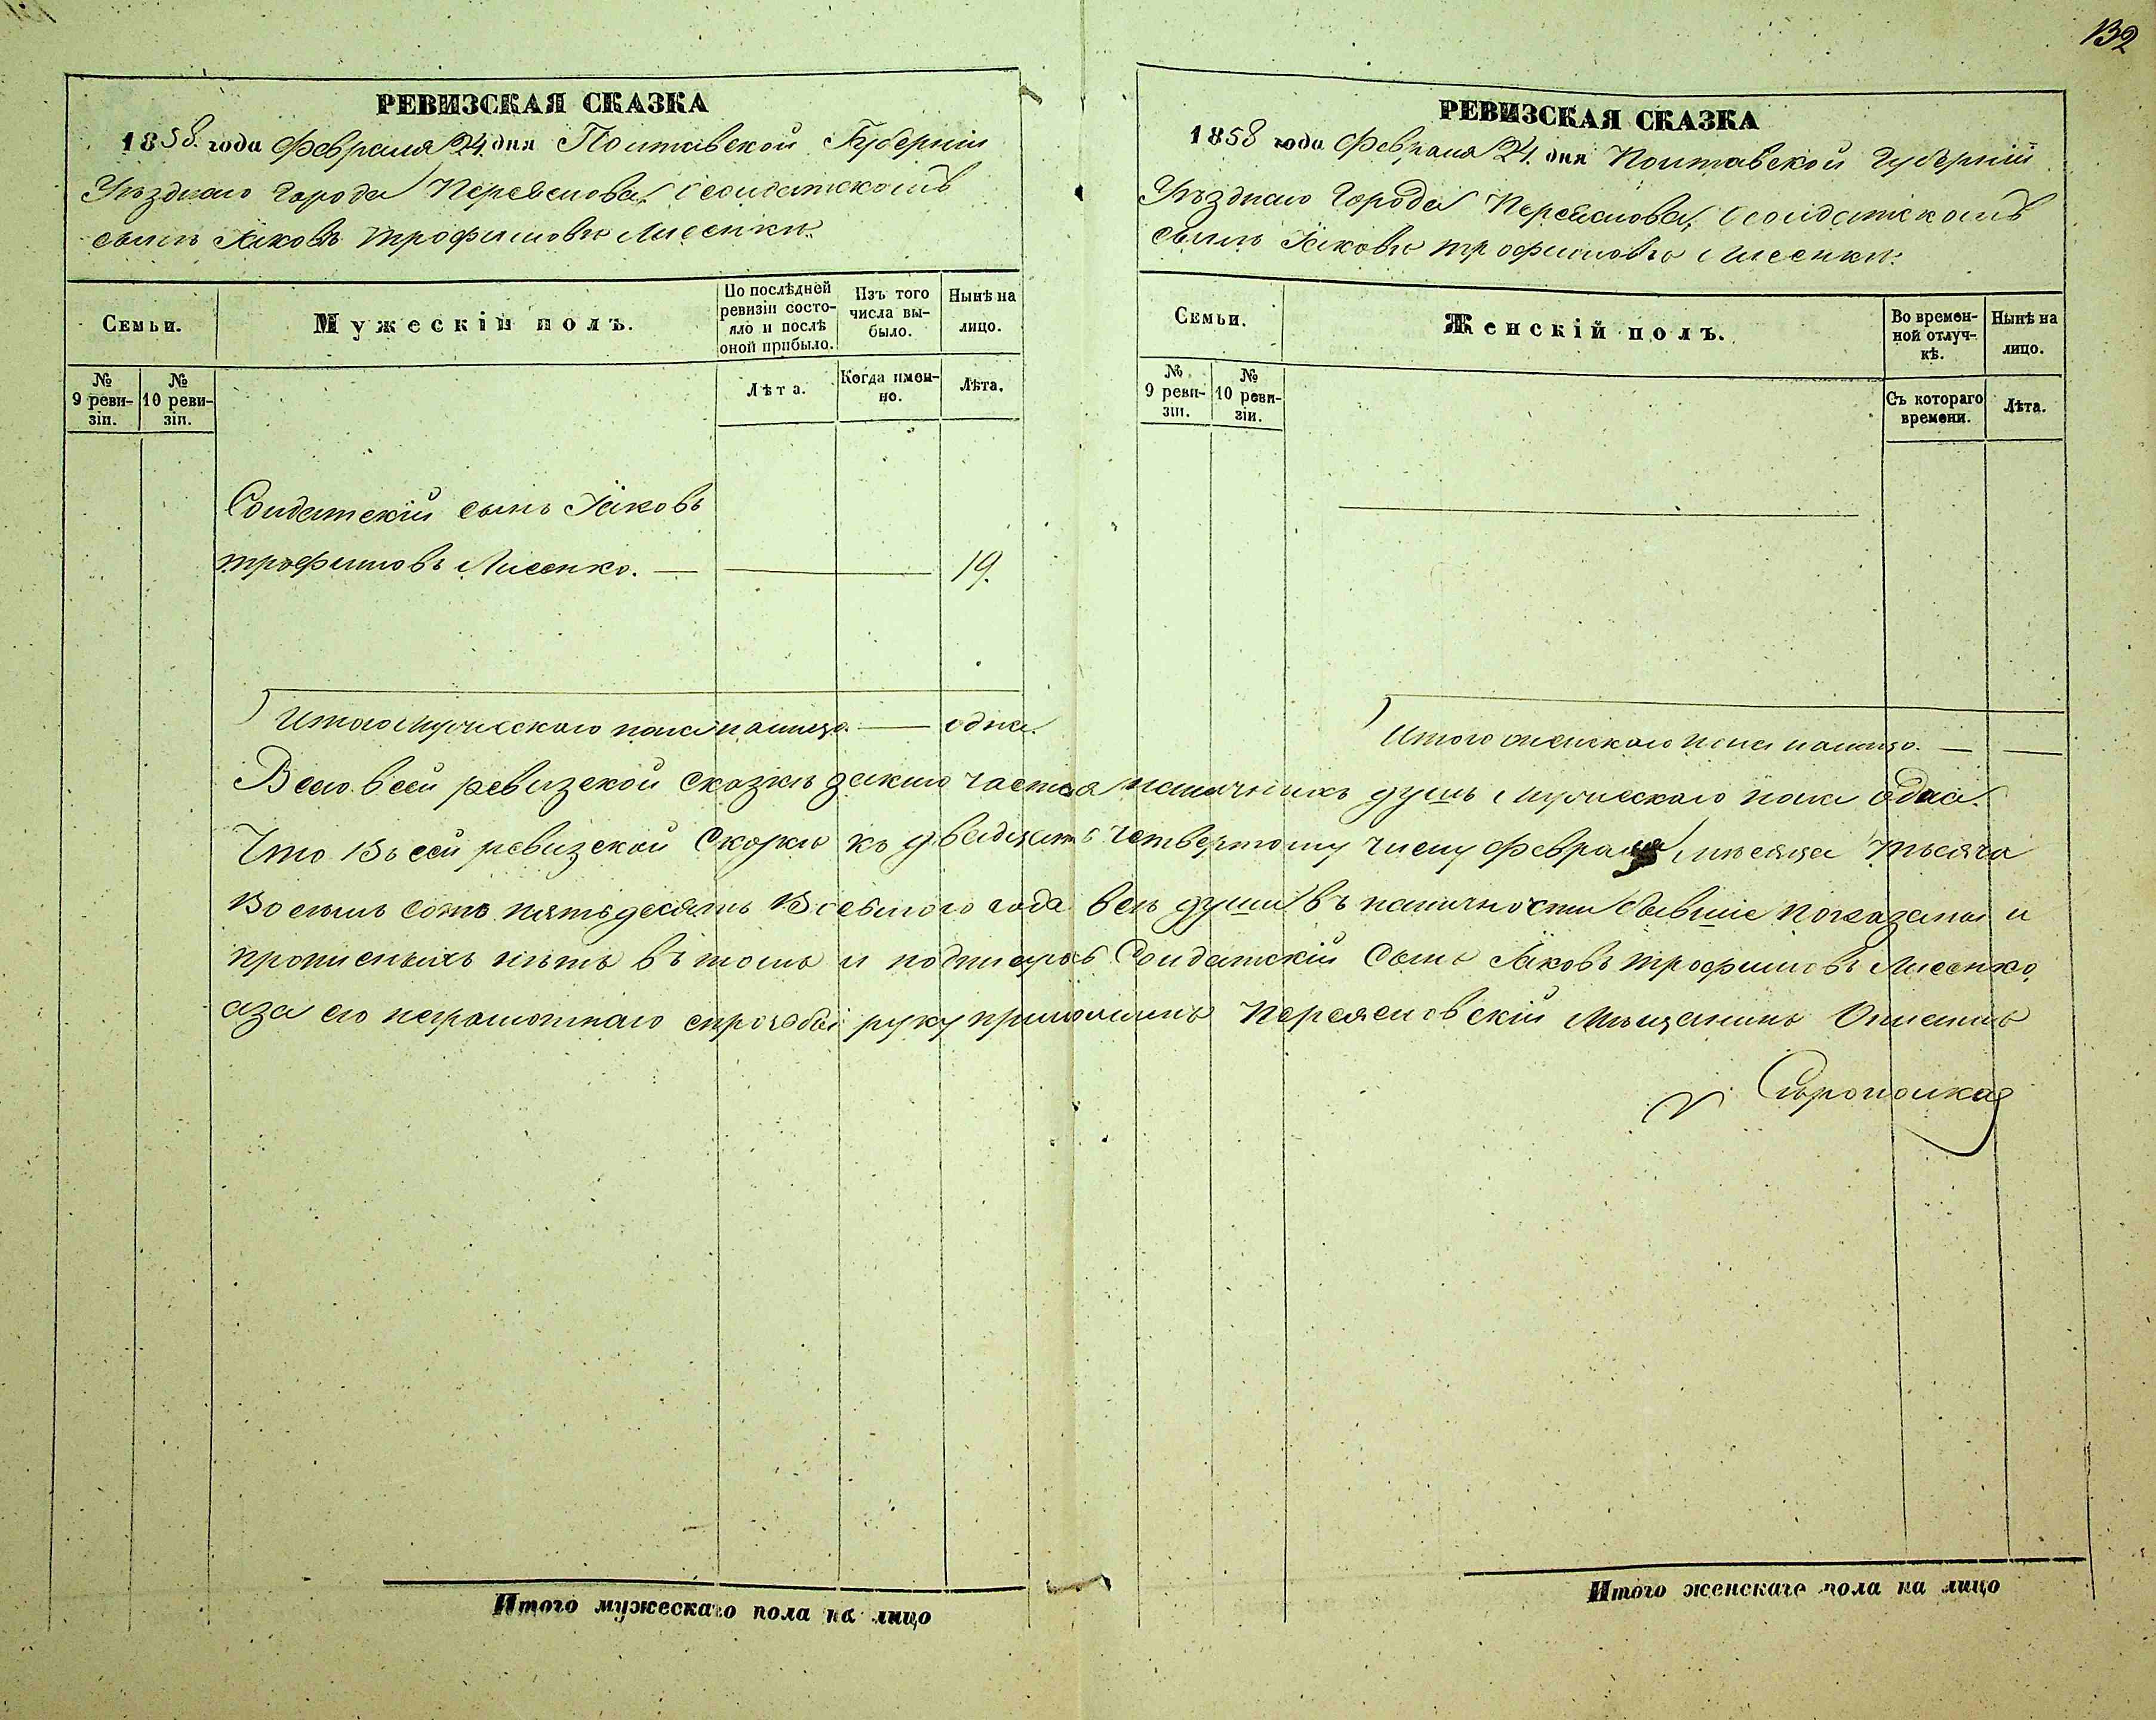 132
РЕВИЗСКАЯ СКАЗКА
1858. года Февраля 24. дня Полтавской Губерніи
Уѣзднаго города Переяслова, о солдатскомъ
сынѣ Яковѣ Трофимовѣ Лисенкѣ.
Семьи.
Мужескій полъ.
По послѣдней ревизіи состояло и послѣ оной прибыло.
Изъ того числа выбыло.
Нынѣ на лицо.
№ 9 ревизіи.
№ 10 ревизіи.
Лѣта.
Когда именно.
Лѣта.
Солдатскій сынъ Яковъ
Трофимовъ Лисенко. — 19.
Итого мужескаго пола налицо. — одна.
РЕВИЗСКАЯ СКАЗКА
1858 года Февраля 24. дня Полтавской Губерніи
Уѣзднаго Города Переяслова, о солдатскомъ
сынѣ Яковѣ Трофимовѣ Лисенкѣ.
Семьи.
Женскій полъ.
Во временной отлучкѣ.
Нынѣ на лицо.
№ 9 ревизіи.
№ 10 ревизіи.
Съ котораго времени.
Лѣта.
Итого женскаго пола налицо. — —
Всего в сей ревизской сказкѣ наличныхъ душъ мужескаго пола одна.
Что въ сей ревизской Сказкѣ къ двадцать четвертому числу февраля мѣсяца тысяча
восемь сотъ пятьдесятъ восьмого года всѣ души въ наличности бывшіе показаны и
прописныхъ нѣтъ въ томъ и подписуюсь Солдатскій Сынъ Яковъ Трофимовъ Лисенко,
аза его неграмотнаго спрозбы руку приложилъ Переясловскій Мѣщанинъ
Итого мужескаго пола на лицо
Итого женскаго пола на лицо